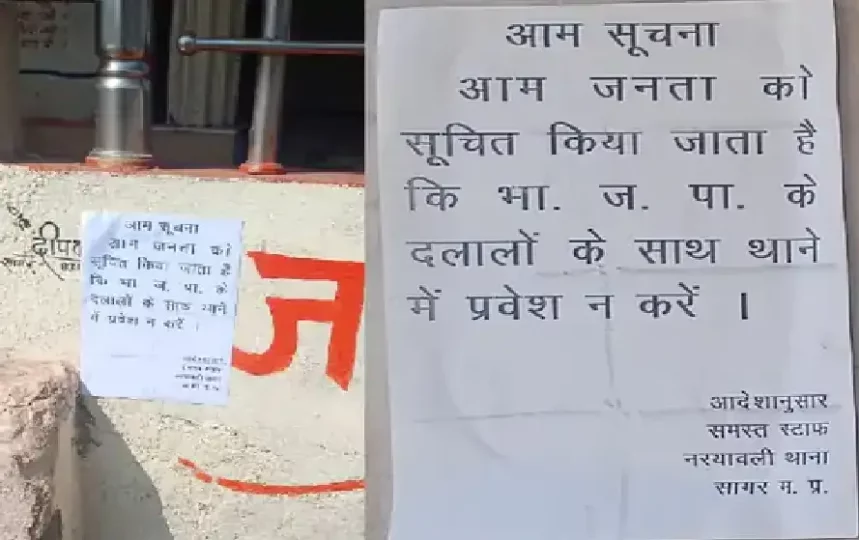 आम सूचना
आम जनता को
सूचित किया जाता है
कि भा. ज. पा. के
दलालों के साथ थाने
में प्रवेश न करें ।
ज
आम सूचना
आम जनता को
सूचित किया जाता है
कि भा. ज. पा. के
दलालों के साथ थाने
में प्रवेश न करें ।
आदेशानुसार
समस्त स्टाफ
नरयावली थाना
सागर म. प्र.